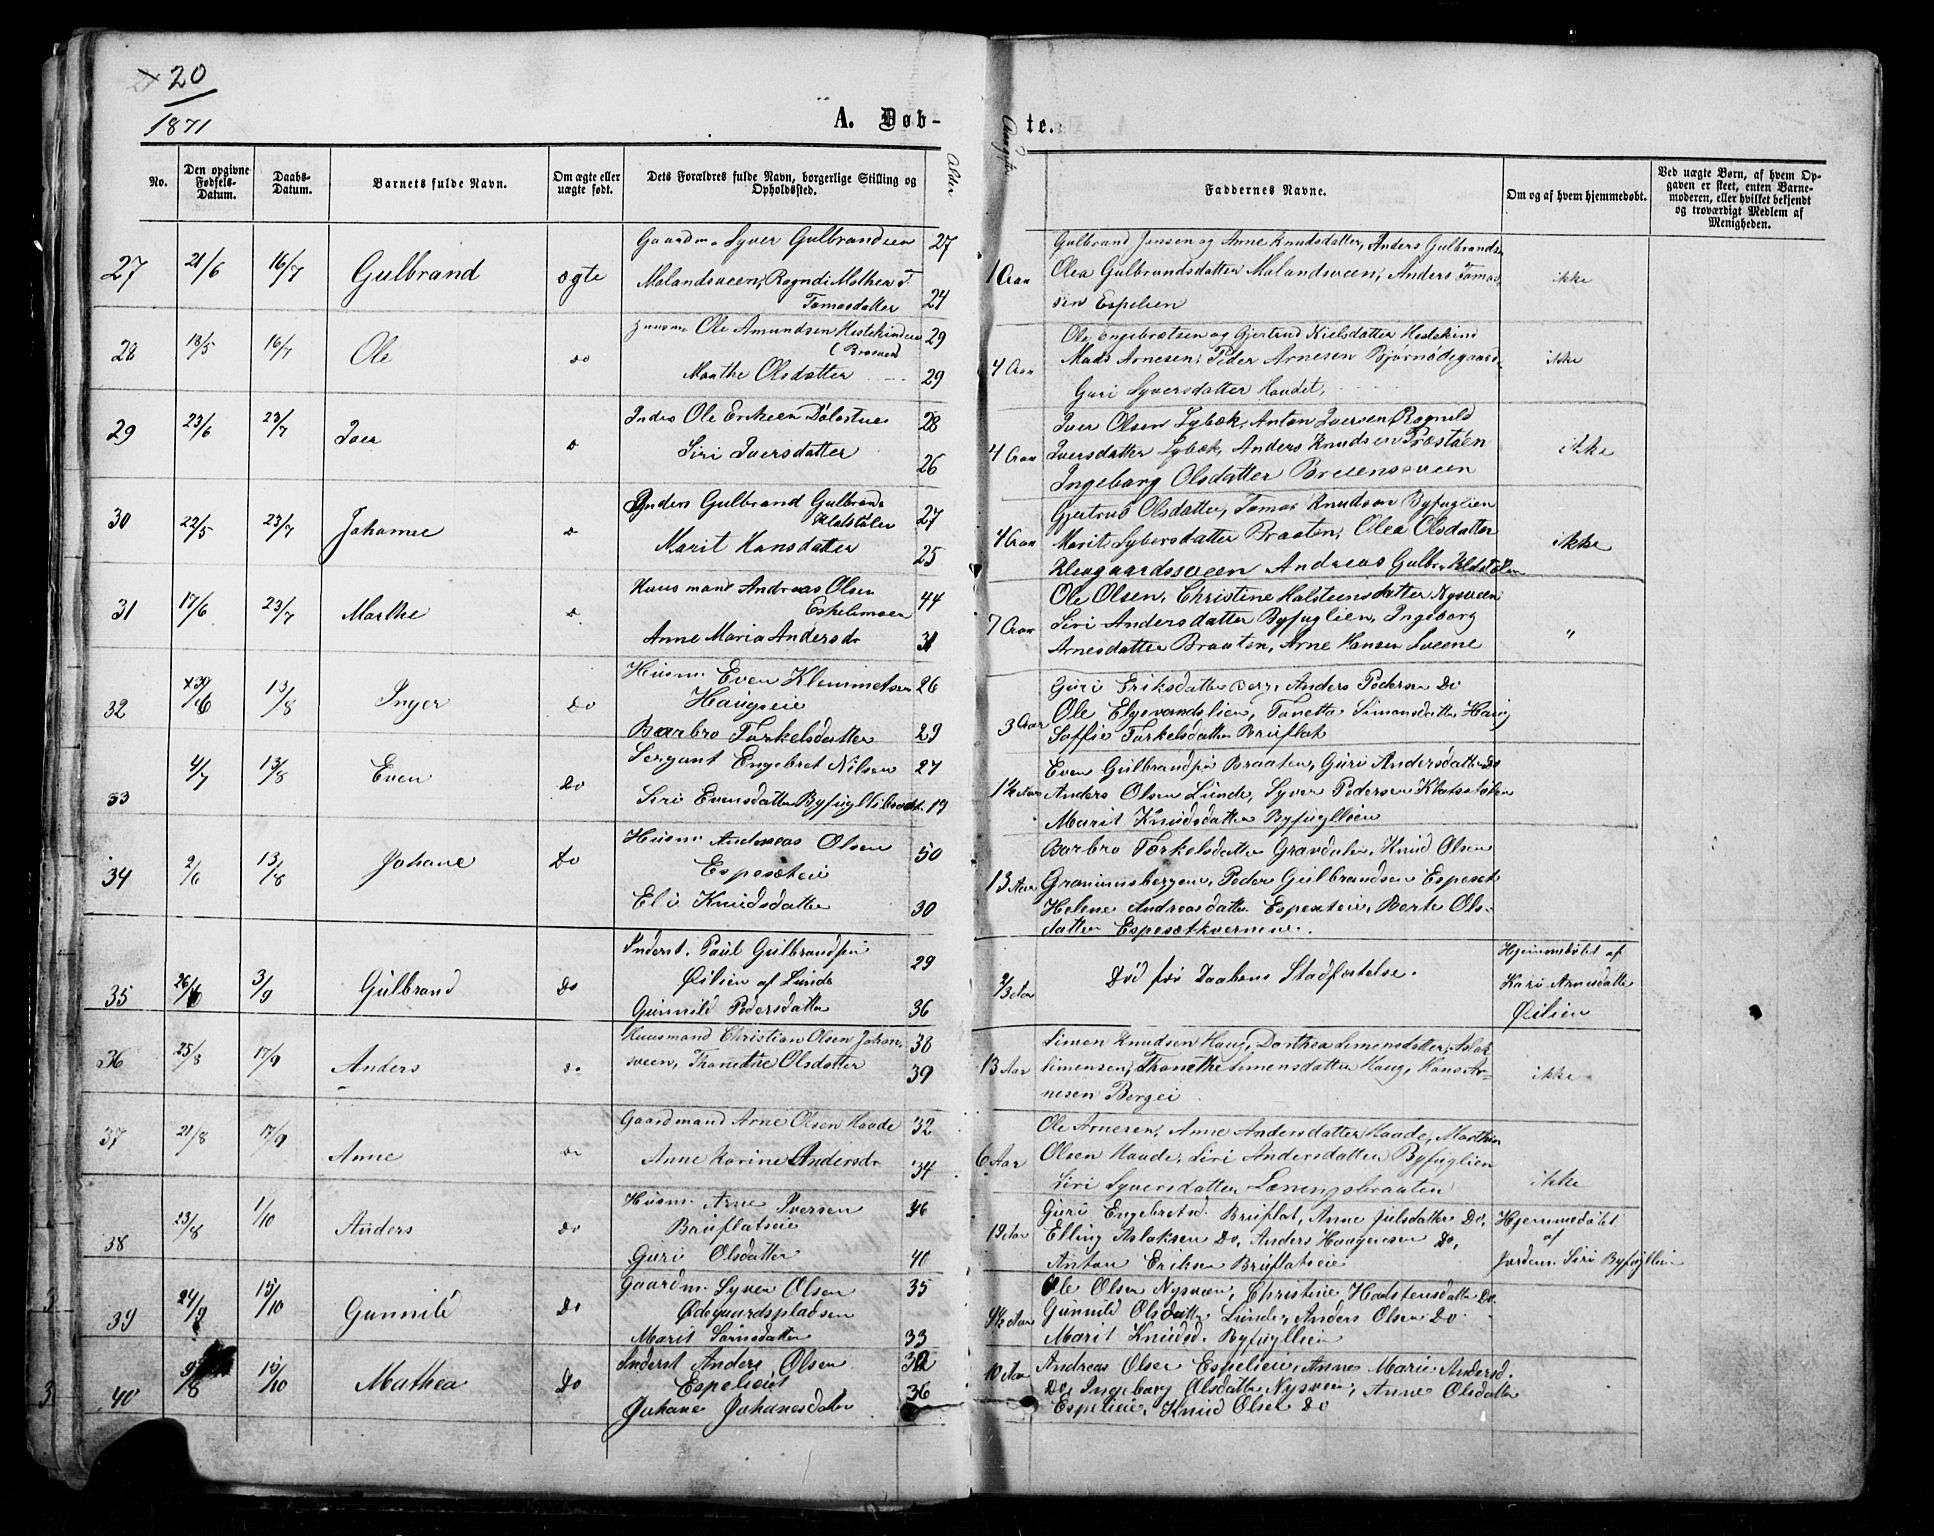 20
1871
A. Døb-
te.
No.
Den opgivne Fødsels-Datum.
Daabs-Datum.
Barnets fulde Navn.
Om ægte eller uægte født.
Dets Forældres fulde Navn, borgerlige Stilling og Opholdssted.
Alder
Faddernes Navne.
Om og af hvem hjemmedøbt.
Ved uægte Børn, af hvem Op-
gaven er skeet, enten Barne-
moderen, eller hvilket bekjendt
og troværdigt Medlem af
Menigheden.
27 21/6 16/7 Gulbrand ægte
Syver Gulbrandsen 27
Tomasdatter 24
1 Aar
Gulbrand Jensen og Anne Knudsdatter, Anders Gulbrandsen
Olea Gulbrandsdatter Molandsveen, Anders Tomas-
sen Espelien
ikke
28 18/5 16/7 Ole do
Ole Amundsen 29
Marthe Olsdatter 29
4 Aar
Ole Engebretsen og Gjertrud Nielsdatter Hestekind
Mads Arnesen, Peder Arnesen
Guri Syversdatter Haudet,
ikke
29 23/6 23/7 Iver
Ole Eriksen 28
Siri Iversdatter 26
4 Aar
Iver Olsen Lybæk, Anton Iversen Rognild
Iversdatter Lybæk, Anders Knudsen Præstøen
Ingeborg Olsdatter
ikke
30 22/5 23/7 Johanne
Gulbrand Gulbrands 27
Marit Hansdatter 25
4 Aar
Gjertrud Olsdatter, Tomas Knudsen Byfuglien
Marit Syversdatter Braaten, Olea Olsdatter
Andreas Gulbr.
ikke
31 17/6 23/7 Marthe
Huusmand Andreas Olsen 44
Anne Maria Andersdr 31
7 Aar
Ole Olsen, Christine Halsteensdatter Nysveen
Siri Andersdatter Byfuglien, Ingeborg
Arnesdatter Braaten, Arne Hansen Sveene
"
32 30/6 13/8 Inger Do
Husm. Even Klemmetsen 26
Haugseie
Barbro Torkelsdatter 29
3 Aar
Guri Eriksdatter Berg, Anders Pedersen Do
Ole Elgevandslien, Tonetta Simonsdatter Haug
Soffie Torkelsdatter Bruflat
33 4/7 13/8 Even Do
Sergant Engebret Nilsen 27
Siri Evensdatter 19
1½ Aar
Even Gulbrandsen Braaten, Guri Andersdatter Do
Anders Olsen Lunde, Syver Pedersen
Marit Knudsdatter Byfugllien
34 2/6 13/8 Johane Do
Husm. Andreas Olsen 50
Espeseteie
Eli Knudsdatter 30
13 Aar
Barbro Torkelsdatter Gravdalen, Knud Olsen
Peder Gulbrandsen Espeset
Helene Andreasdatter Espeseteie, Berte Ols-
datter Espesetkvernene.
35 3/9 Gulbrand Do
Inderst. Paul Gulbrandsen 29
Øilien af Lunde
Gunnild Pedersdatter 36
2/3 Aar
Død før Daabens Stadfæstelse.
Hjemmedøbt af
Kari Arnesdatter
Øilien
36 25/8 17/9 Anders do
Huusmand Christian Olsen Johans- 38
sveen, Thonethe Olsdatter 39
13 Aar
Simen Knudsen Haug, Dorthea Simensdatter, Aslak
Simensen, Thonethe Simensdatter Haug, Hans Ar-
nesen Bergei
ikke
37 21/8 17/9 Anne do
Gaardmand Arne Olsen Haade 32
Anne Karine Andersdr 34
6 Aar
Ole Arnesen, Anne Andersdatter Haade, Marthin
Olsen Haade, Siri Andersdatter Byfuglien
Siri Syversdatter
ikke
38 23/8 1/10 Anders Do
Husm. Arne Iversen 46
Bruflatseie
Guri Olsdatter 40
19 Aar
Guri Engebretsd. Bruflat, Anne Julsdatter Do,
Elling Aslaksen Do, Anders Haagensen Do,
Anton Eriksen Bruflatseie
Hjemmedøbt
af
Jordem. Siri Byfugllien
39 24/9 15/10 Gunnild Do
Gaardm. Syver Olsen 35
Ødegaardspladsen
Marit 33
9½ Aar
Ole Olsen Nysveen, Christine Halstensdatter Do.
Gunnild Olsdatter Lunde, Anders Olsen Do
Marit Knudsd. Byfugllien
40 15/10 Mathea Do
Inderst Anders Olsen 32
Espelieiet
Johane Johanesdatter 36
10 Aar
Andreas Olsen Espelieie, Anne Marie Andersd.
Do, Ingeborg Olsdatter Nysveen, Anne Olsdatter
Espelieie, Knud Olsen Do